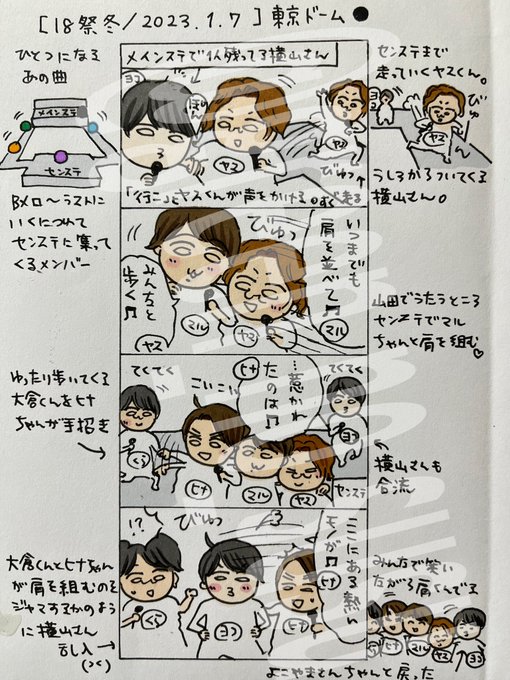 [18祭冬/2023.1.7]東京ドーム●
ひとつになる
あの曲
メインステ
センステ
Bメロ〜ラストに
いくにつれて
センステに集って
くるメンバー
メインステで1人残ってる横山さん
ヨコ
ぽつん
ヤス
ヤス
びゅっ
「行こ」とヤスくんが声をかける。
センステまで
走っていくヤスくん。
びゅ
ヨコ
ヤス
うしろからついてくる
横山さん。
いつまでも
肩を並べて♫
マル
びゅっ
みんなと
歩く♫
ヤス
マル
ヤス
山田でうたうところ
センステでマル
ちゃんと肩を組む♡
ゆったり歩いてくる
大倉くんをヒナ
ちゃんが手招き
てくてく
こいこい
ヒナ
…惹かれ
たのは♫
てくてく
くら
ヒナ
マル
ヤス
ヨコ
センステ
横山さんも
合流
大倉くんとヒナちゃん
が肩を組むのを
ジャマするかのよう
に横山さん
乱入→
!?
びゅっ
ここにある熱い
モノが♫
ヒナ
くら
ヨコ
ヒナ
みんなで笑い
ながら肩くんでる
くら
ヒナ
マル
ヤス
ヨコ
よこやまさんちゃんと戻った